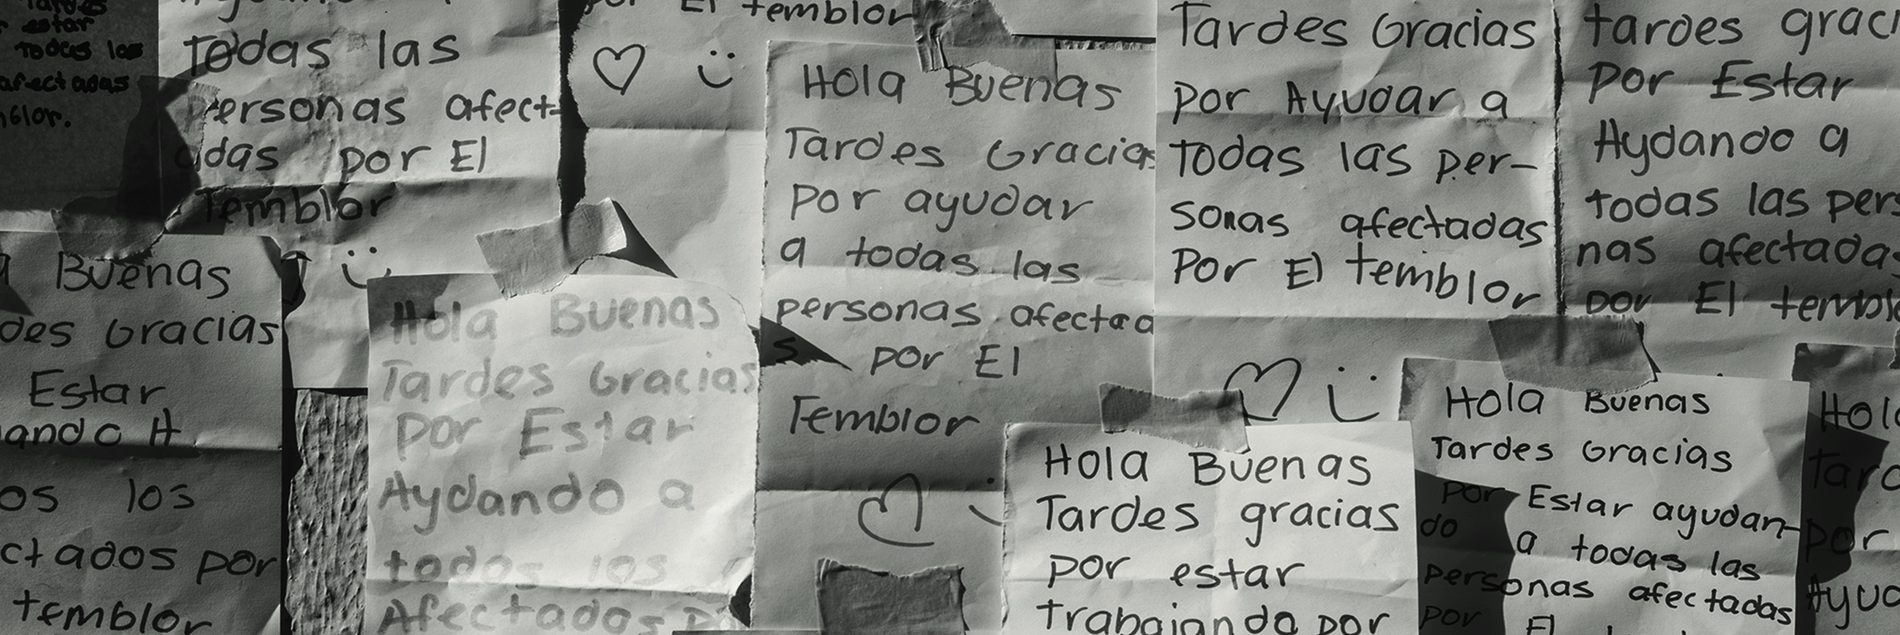 estar
todas las
afectadas
todas las
personas afect-
adas por El
Temblor
Buenas
des Gracias
Estar
ando A
os los
ctados por
temblor
Hola Buenas
Tardes Gracias
por Estar
Aydando a
todos los
Afectados
El temblor
Hola Buenas
Tardes Gracias
Por ayudar
a todas las
personas afectad
s por El
Temblor
Tardes Gracias
por Ayudar a
Todas las per-
sonas afectadas
Por El temblor
Hola Buenas
Tardes gracias
por estar
trabajando por
tardes grac
por Estar
Aydando a
todas las pers
nas afectada
por El temblo
Hola Buenas
Tardes Gracias
Por Estar ayudan-
do a todas las
personas afectadas
por El
Hol
Tard
por
Ayud